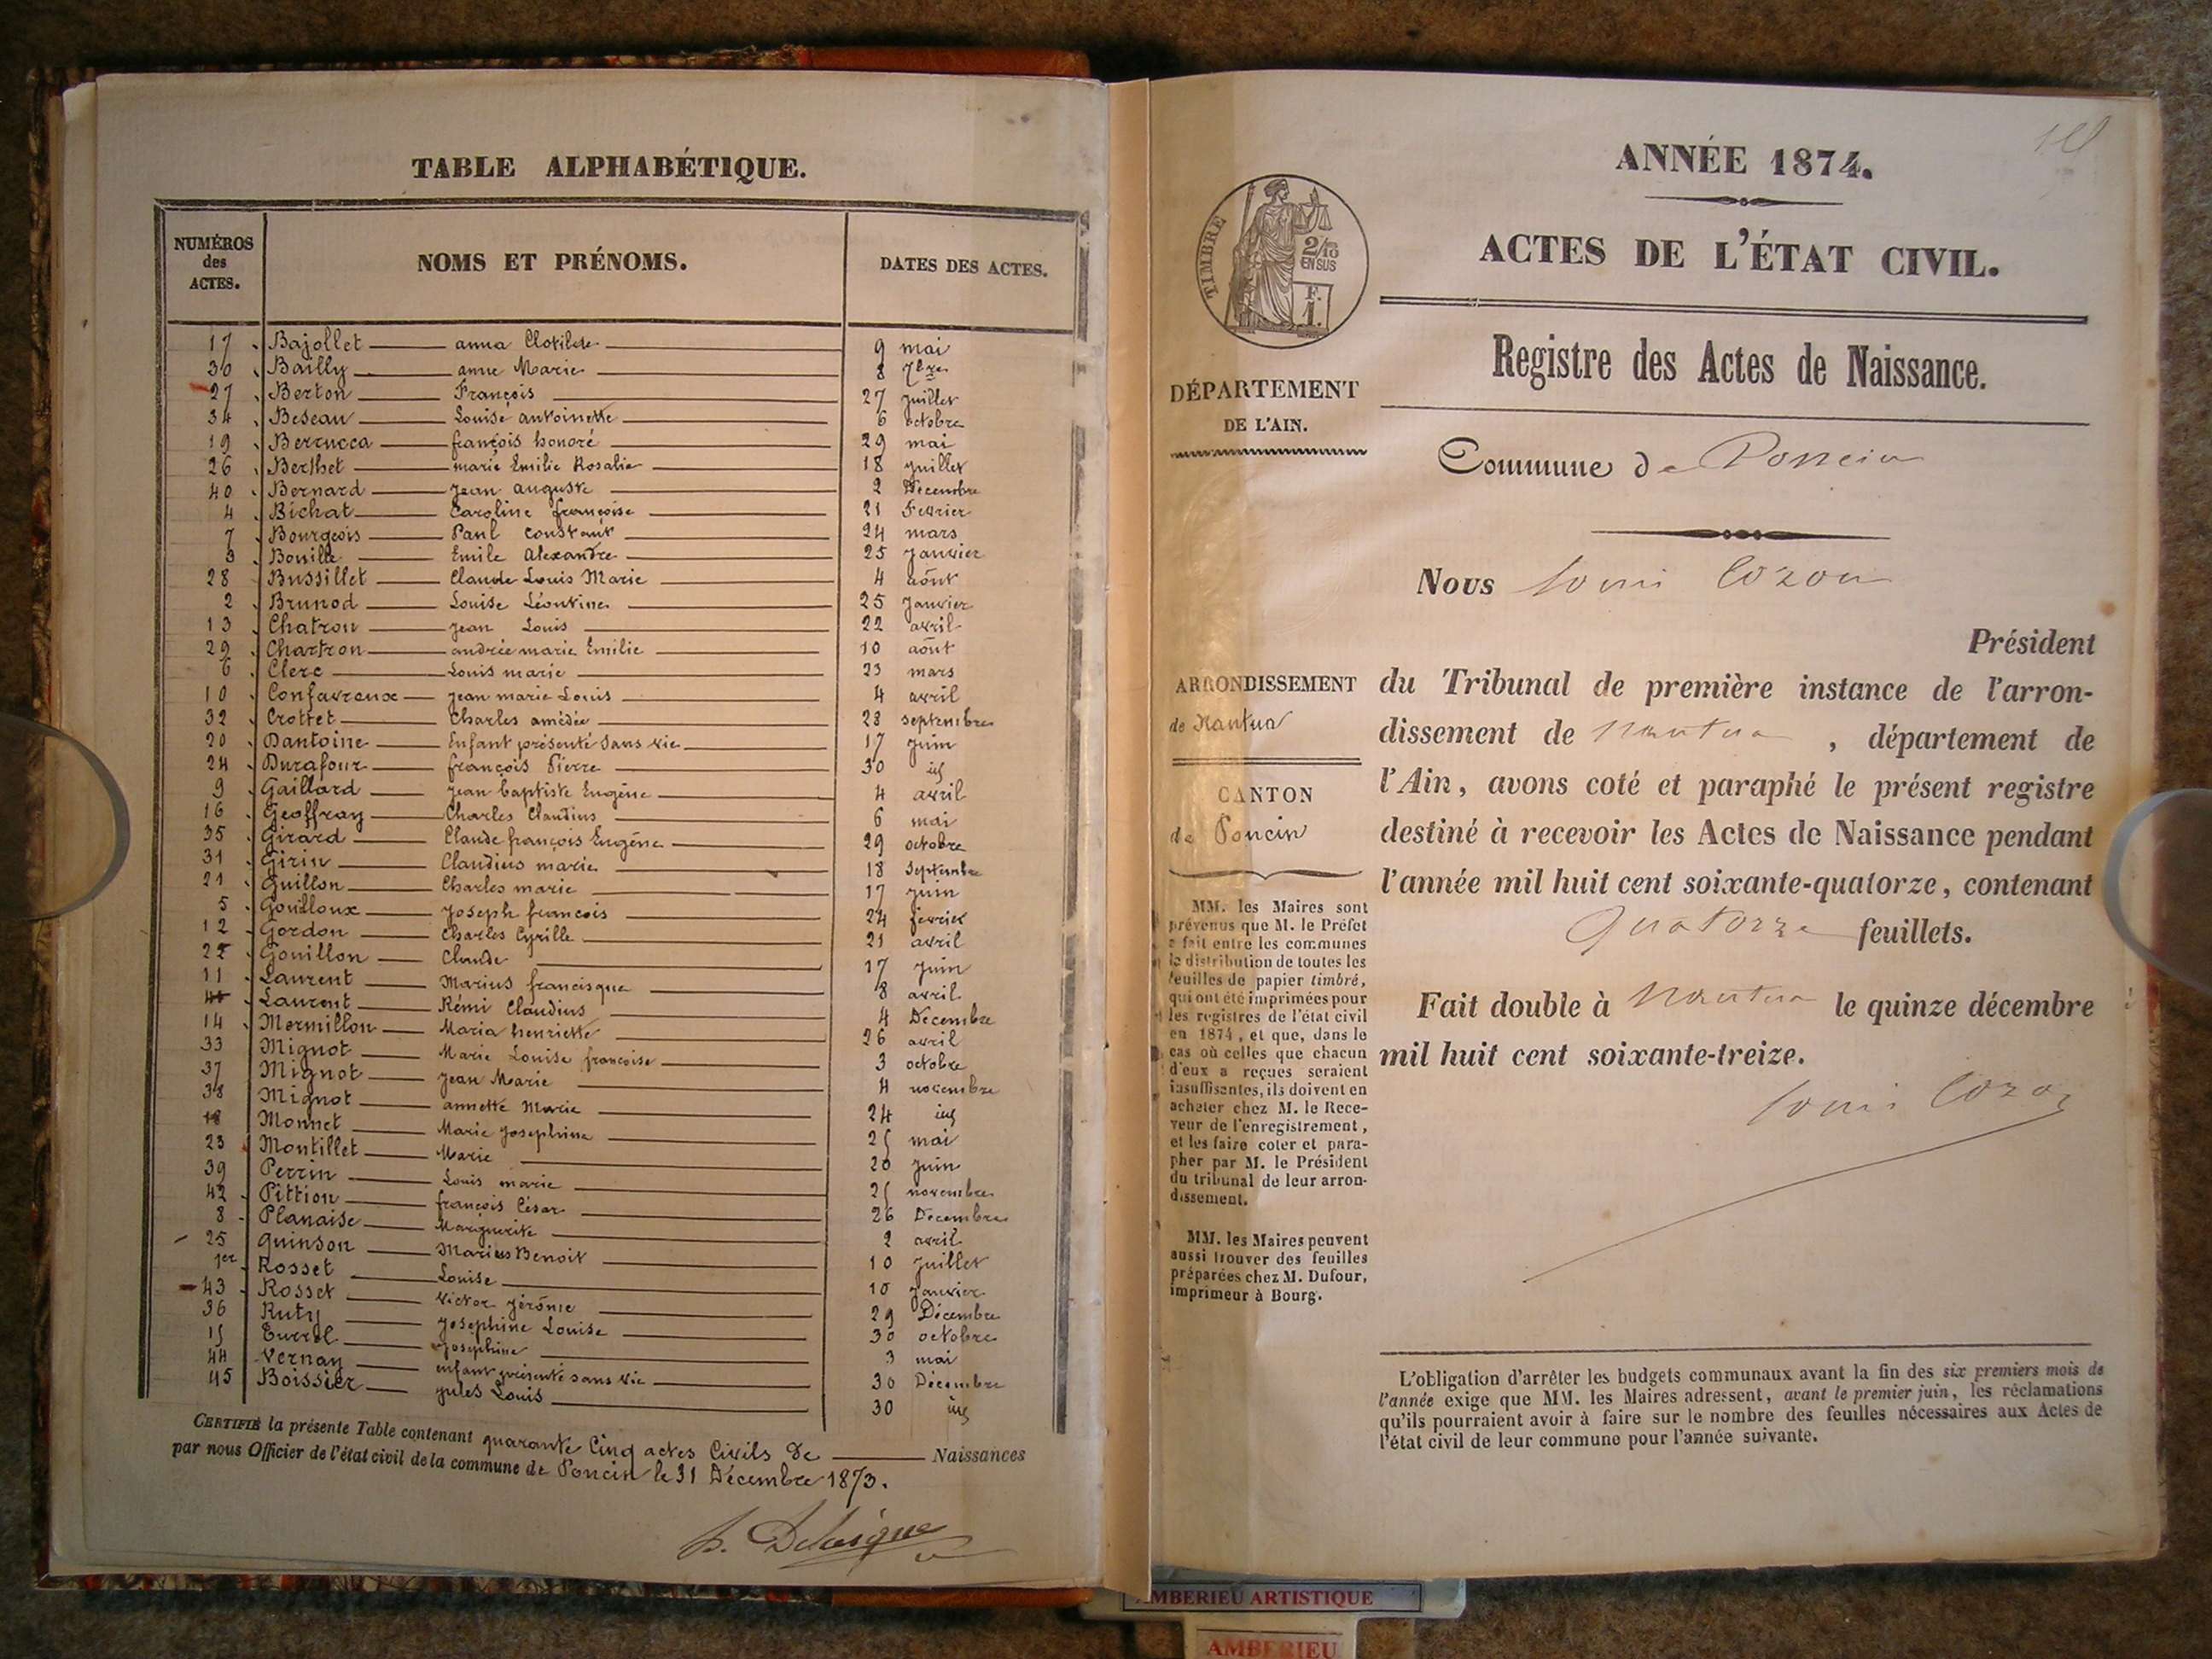 TABLE ALPHABÉTIQUE.
NUMÉROS des ACTES. NOMS ET PRÉNOMS. DATES DES ACTES.
17 Bajollet anna Clotilde 9 mai
30 Bailly anne Marie 8 7bre
27 Berton François 27 juillet
34 Beseau Louise antoinette 6 octobre
19 Berrucca françois honoré 29 mai
26 Berthet marie Emilie Rosalie 18 juillet
40 Bernard jean auguste 2 Décembre
4 Bichat Caroline françoise 21 Fevrier
7 Bourgeois Paul constant 24 mars
3 Bouille Emile Alexandre 25 Janvier
28 Bussillet Claude Louis Marie 4 août
2 Brunod Louise Léontine 25 Janvier
13 Chatron jean Louis 22 avril
29 Chartron andrée marie Emilie 10 août
6 Clerc Louis marie 23 mars
10 Confavreux jean marie Louis 4 avril
32 Crottet Charles amédée 28 septembre
20 Dantoine Enfant présenté sans vie 17 juin
24 Durafour françois Pierre 30 id
9 Gaillard jean baptiste Eugène 4 avril
16 Geoffray Charles Claudius 6 mai
35 Girard Claude françois Eugène 29 octobre
31 Girin Claudius marie 18 Septembre
21 Guillon Charles marie 17 juin
5 Gouilloux joseph francois 24 fevrier
12 Gordon Charles Cyrille 21 avril
22 Gouillon Claude 17 juin
11 Laurent Marius francisque 8 avril
Laurent Rémi Claudius 4 Décembre
14 Mermillon Maria henriette 26 avril
33 Mignot Marie Louise francoise 3 octobre
37 Mignot jean Marie 4 novembre
38 Mignot annette Marie 24 id
18 Monnet Marie josephine 25 mai
23 Montillet Marie 20 juin
39 Perrin Louis marie 25 novembre
42 Pittion françois César 26 Décembre
8 Planaise Marguerite 2 avril
25 Quinson Marius Benoit 10 juillet
1er Rosset Louise 10 Janvier
43 Rosset Victor jérôme 29 Décembre
36 Ruty josephine Louise 30 octobre
15 josephine 3 mai
44 Vernay enfant présenté sans vie 30 Décembre
45 Boissier jules Louis 30 id
CERTIFIÉ la présente Table contenant quarante Cinq actes Civils de Naissances
par nous Officier de l'état civil de la commune de Poncin le 31 Décembre 1873.
ANNÉE 1874.
ACTES DE L'ÉTAT CIVIL.
Registre des Actes de Naissance.
TIMBRE
2/10 EN SUS
F. 1.
DÉPARTEMENT
DE L'AIN.
ARRONDISSEMENT
de Nantua
CANTON
de Poncin
MM. les Maires sont
prévenus que M. le Préfet
a fait entre les communes
la distribution de toutes les
feuilles de papier timbré,
qui ont été imprimées pour
les registres de l'état civil
en 1874, et que, dans le
cas où celles que chacun
d'eux a reçues seraient
insuffisantes, ils doivent en
acheter chez M. le Rece-
veur de l'enregistrement,
et les faire coter et para-
pher par M. le Président
du tribunal de leur arron-
dissement.
MM. les Maires peuvent
aussi trouver des feuilles
préparées chez M. Dufour,
imprimeur à Bourg.
Commune de Poncin
Nous Louis Cozon
Président
du Tribunal de première instance de l'arron-
dissement de nantua, département de
l'Ain, avons coté et paraphé le présent registre
destiné à recevoir les Actes de Naissance pendant
l'année mil huit cent soixante-quatorze, contenant
quatorze feuillets.
Fait double à nantua le quinze décembre
mil huit cent soixante-treize.
Louis Cozon
L'obligation d'arrêter les budgets communaux avant la fin des six premiers mois de
l'année exige que MM. les Maires adressent, avant le premier juin, les réclamations
qu'ils pourraient avoir à faire sur le nombre des feuilles nécessaires aux Actes de
l'état civil de leur commune pour l'année suivante.
AMBERIEU ARTISTIQUE
AMBERIEU